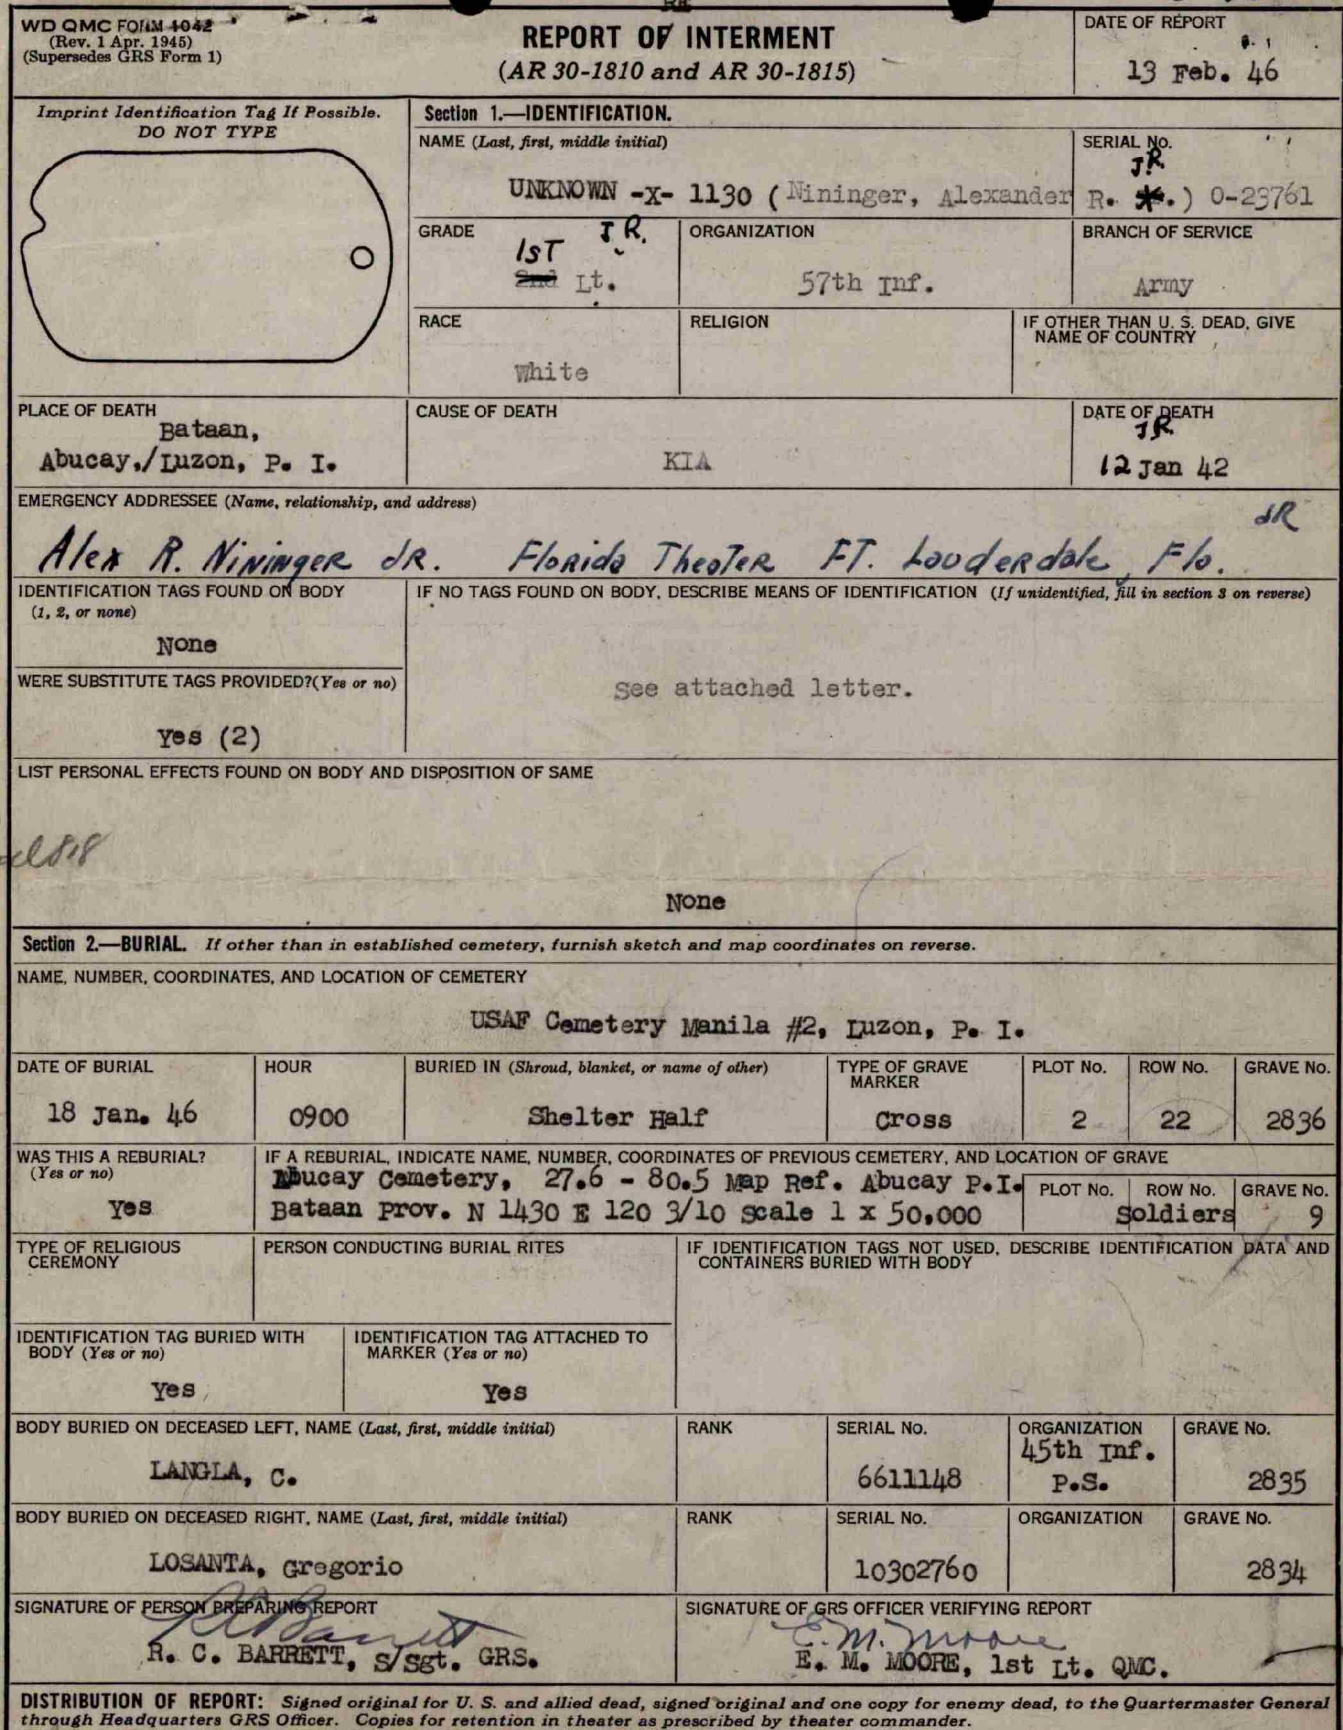 WD QMC FORM 1042
(Rev. 1 Apr. 1945)
(Supersedes GRS Form 1)
REPORT OF INTERMENT
(AR 30-1810 and AR 30-1815)
DATE OF REPORT
13 Feb. 46
Imprint Identification Tag If Possible.
DO NOT TYPE
Section 1.—IDENTIFICATION.
NAME (Last, first, middle initial)
SERIAL No.
JR
UNKNOWN -X- 1130 (Nininger, Alexander R. .) O-23761
GRADE
1ST JR.
2nd Lt.
ORGANIZATION
57th Inf.
BRANCH OF SERVICE
Army
RACE
White
RELIGION
IF OTHER THAN U. S. DEAD, GIVE
NAME OF COUNTRY
PLACE OF DEATH
Bataan,
Abucay,/Luzon, P. I.
CAUSE OF DEATH
KIA
DATE OF DEATH
JR
12 Jan 42
EMERGENCY ADDRESSEE (Name, relationship, and address)
JR
Alex R. Nininger JR. Florida Theater FT. Lauderdale, Fla.
IDENTIFICATION TAGS FOUND ON BODY
(1, 2, or none)
None
IF NO TAGS FOUND ON BODY, DESCRIBE MEANS OF IDENTIFICATION (If unidentified, fill in section 3 on reverse)
See attached letter.
WERE SUBSTITUTE TAGS PROVIDED?(Yes or no)
Yes (2)
LIST PERSONAL EFFECTS FOUND ON BODY AND DISPOSITION OF SAME
None
Section 2.—BURIAL. If other than in established cemetery, furnish sketch and map coordinates on reverse.
NAME, NUMBER, COORDINATES, AND LOCATION OF CEMETERY
USAF Cemetery Manila #2, Luzon, P. I.
DATE OF BURIAL
18 Jan. 46
HOUR
0900
BURIED IN (Shroud, blanket, or name of other)
Shelter Half
TYPE OF GRAVE
MARKER
Cross
PLOT No.
2
ROW No.
22
GRAVE No.
2836
WAS THIS A REBURIAL?
(Yes or no)
Yes
IF A REBURIAL, INDICATE NAME, NUMBER, COORDINATES OF PREVIOUS CEMETERY, AND LOCATION OF GRAVE
Abucay Cemetery, 27.6 - 80.5 Map Ref. Abucay P.I.
Bataan Prov. N 1430 E 120 3/10 Scale 1 x 50,000
PLOT No.
ROW No.
Soldiers
GRAVE No.
9
TYPE OF RELIGIOUS
CEREMONY
PERSON CONDUCTING BURIAL RITES
IF IDENTIFICATION TAGS NOT USED, DESCRIBE IDENTIFICATION DATA AND
CONTAINERS BURIED WITH BODY
IDENTIFICATION TAG BURIED WITH
BODY (Yes or no)
Yes
IDENTIFICATION TAG ATTACHED TO
MARKER (Yes or no)
Yes
BODY BURIED ON DECEASED LEFT, NAME (Last, first, middle initial)
LANGLA, C.
RANK
SERIAL No.
6611148
ORGANIZATION
45th Inf.
P.S.
GRAVE No.
2835
BODY BURIED ON DECEASED RIGHT, NAME (Last, first, middle initial)
LOSANTA, Gregorio
RANK
SERIAL No.
10302760
ORGANIZATION
GRAVE No.
2834
SIGNATURE OF PERSON PREPARING REPORT
R C Barrett
R. C. BARRETT, S/Sgt. GRS.
SIGNATURE OF GRS OFFICER VERIFYING REPORT
E. M. Moore
E. M. MOORE, 1st Lt. QMC.
DISTRIBUTION OF REPORT: Signed original for U. S. and allied dead, signed original and one copy for enemy dead, to the Quartermaster General
through Headquarters GRS Officer. Copies for retention in theater as prescribed by theater commander.